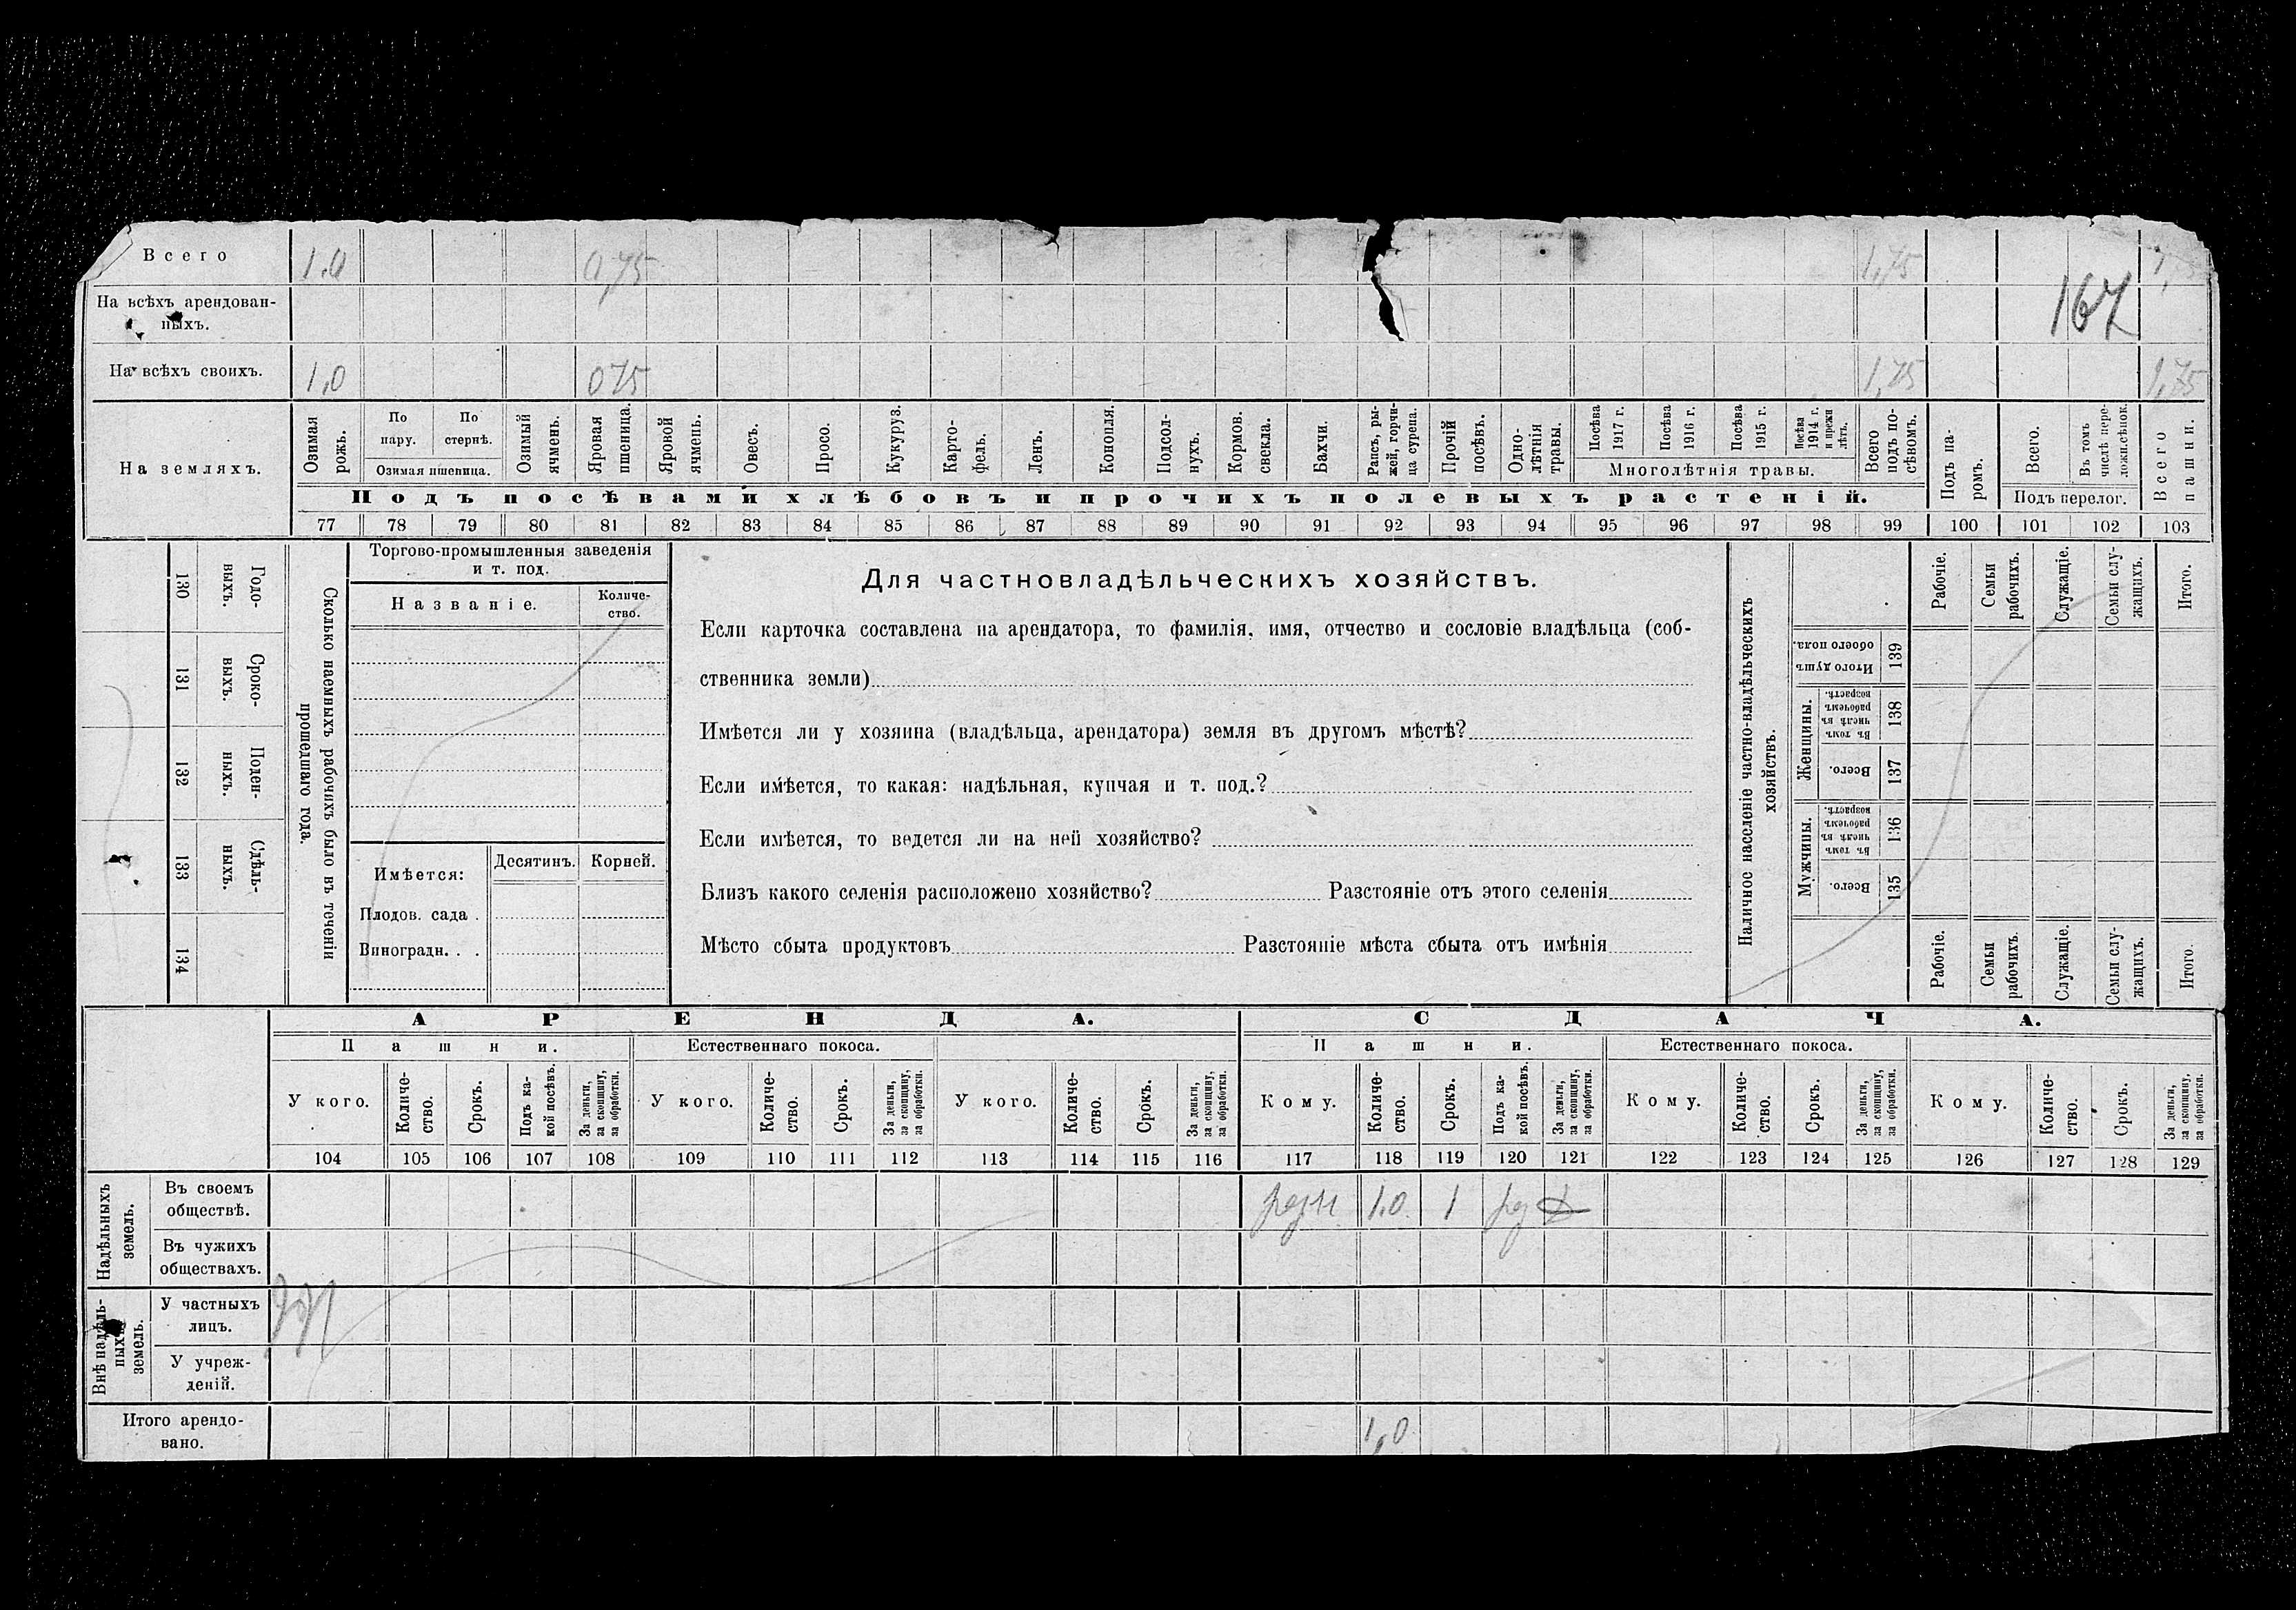 Всего 1,0 0,75 1,75
На всѣхъ арендован-
ныхъ.
167
На всѣхъ своихъ. 1,0 075 1,75 1,75
На земляхъ.
Озимая рожь.
По пару.
По стернѣ.
Озимая пшеница.
Озимый ячмень.
Яровая пшеница.
Яровой ячмень.
Овесъ.
Просо.
Кукуруз.
Карто-
фель.
Ленъ.
Конопля.
Подсол-
нухъ.
Кормов. свекла.
Бахчи.
Рапсъ, ры-
жей, горчи-
ца сурепа.
Прочій посѣвъ.
Одно-
лѣтнія травы.
Посѣва 1917 г.
Посѣва 1916 г.
Посѣва 1915 г.
Посѣва 1914 г. и прежн лѣтъ.
Многолѣтнія травы.
Всего подъ по-
сѣвомъ.
Подъ па-
ромъ.
Всего.
Въ томъ числѣ пере-
ложн.сѣнок.
Подъ перелог.
Всего пашни.
Подъ посѣвами хлѣбовъ и прочихъ полевыхъ растеній.
77 78 79 80 81 82 83 84 85 86 87 88 89 90 91 92 93 94 95 96 97 98 99 100 101 102 103
130 Годо-
выхъ.
131 Сроко-
выхъ.
132 Поден-
ныхъ.
133 Сдѣль-
ныхъ.
134
Сколько наемныхъ рабочихъ было въ теченіи
прошедшаго года.
Торгово-промышленныя заведенія
и т. под.
Названіе.
Количе-
ство.
Имѣется: Десятинъ. Корней.
Плодов. сада .
Виноградн. . .
Для частновладѣльческихъ хозяйствъ.
Если карточка составлена на арендатора, то фамилія, имя, отчество и сословіе владѣльца (соб-
ственника земли)
Имѣется ли у хозяина (владѣльца, арендатора) земля въ другомъ мѣстѣ?
Если имѣется, то какая: надѣльная, купчая и т. под.?
Если имѣется, то ведется ли на ней хозяйство?
Близъ какого селенія расположено хозяйство? Разстояніе отъ этого селенія
Мѣсто сбыта продуктовъ Разстояніе мѣста сбыта отъ имѣнія
Наличное населеніе частно-владѣльческихъ
хозяйствъ.
Рабочіе.
Семьи рабочихъ.
Служащіе.
Семьи слу-
жащихъ.
Итого.
Итого душъ обоего пола. 139
Женщины.
Въ томъ числѣ въ рабочемъ возрастѣ. 138
Всего. 137
Мужчины.
Въ томъ числѣ въ рабочемъ возрастѣ. 136
Всего. 135
Рабочіе.
Семьи рабочихъ.
Служащіе.
Семьи слу-
жащихъ.
Итого.
АРЕНДА. СДАЧА.
Пашни. Естественнаго покоса. Пашни. Естественнаго покоса.
У кого.
Количе-
ство.
Срокъ.
Подъ ка-
кой посѣвъ.
За деньги, за скопщину, за обработки.
У кого.
Количе-
ство.
Срокъ.
За деньги, за скопщину, за обработки.
У кого.
Количе-
ство.
Срокъ.
За деньги, за скопщину, за обработки.
Кому.
Количе-
ство.
Срокъ.
Подъ ка-
кой посѣвъ.
За деньги, за скопщину, за обработки.
Кому.
Количе-
ство.
Срокъ.
За деньги, за скопщину, за обработки.
Кому.
Количе-
ство.
Срокъ.
За деньги, за скопщину, за обработки.
104 105 106 107 108 109 110 111 112 113 114 115 116 117 118 119 120 121 122 123 124 125 126 127 128 129
Надѣльныхъ
земель.
Въ своемъ
обществѣ. 1.0 1
Въ чужихъ
обществахъ.
Внѣ надѣль-
ныхъ
земель.
У частныхъ
лицъ.
У учреж-
деній.
Итого арендо-
вано. 1,0